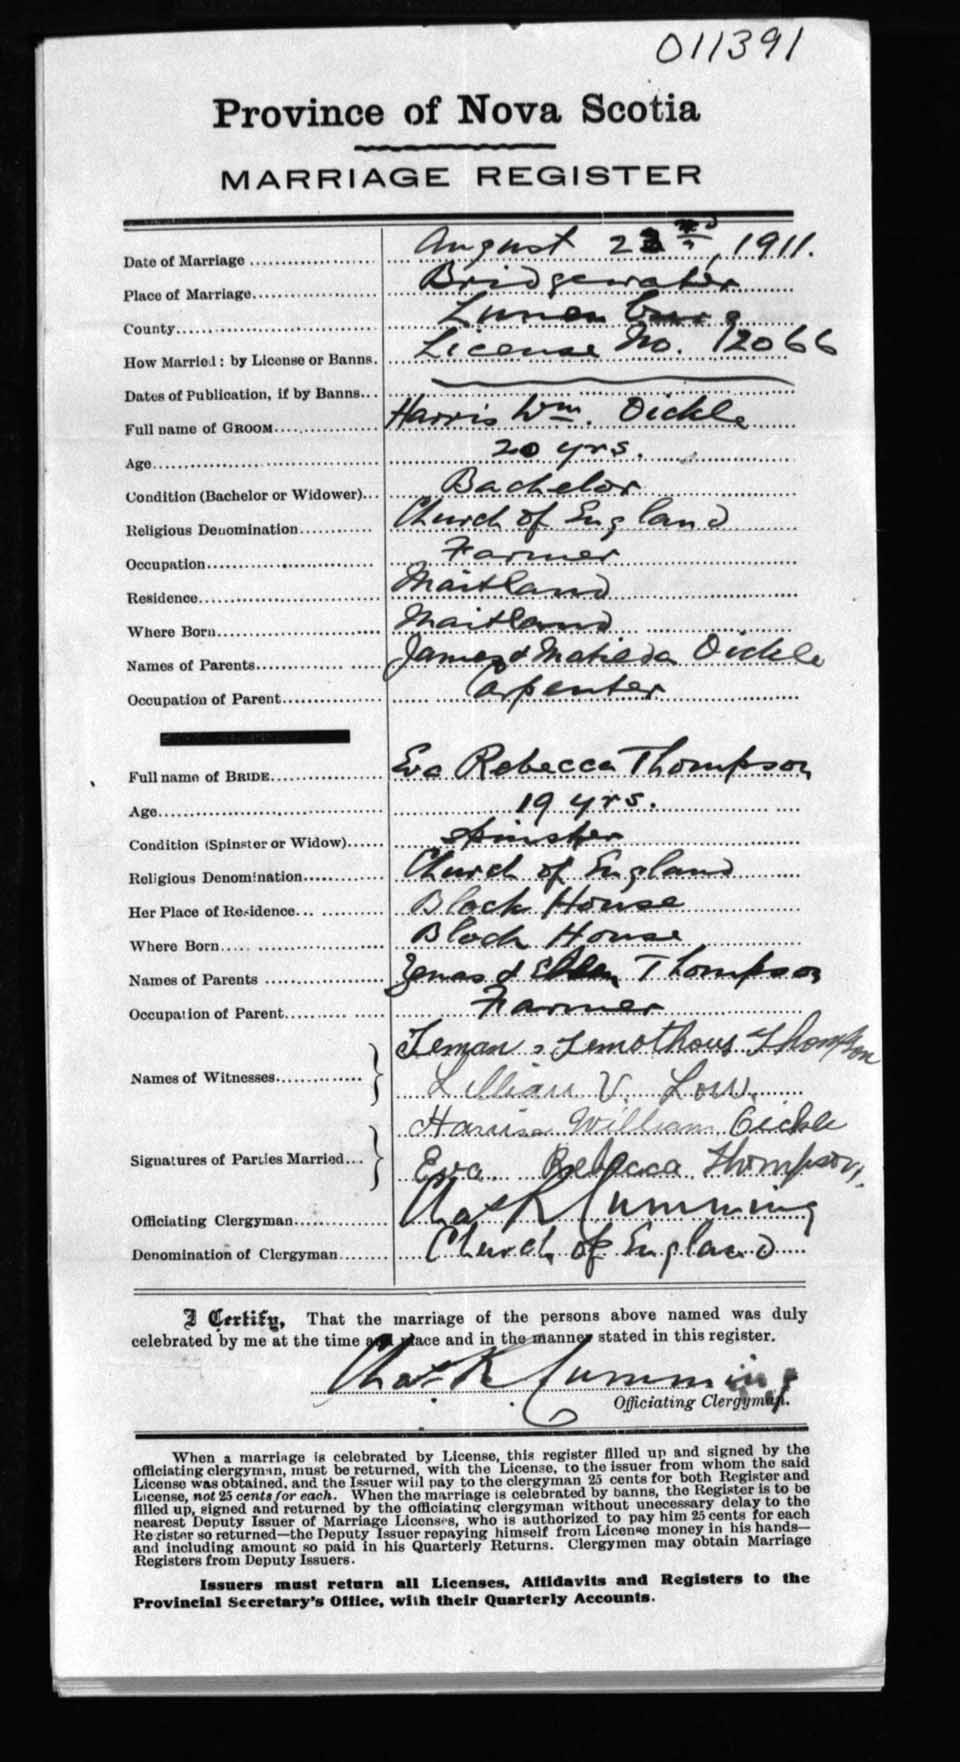 011391
Province of Nova Scotia
MARRIAGE REGISTER
Date of Marriage August 22nd, 1911.
Place of Marriage Bridgewater
County Lunenburg
How Married: by License or Banns. License No. 12066
Dates of Publication, if by Banns
Full name of GROOM Harris Wm. Oickle
Age 20 yrs.
Condition (Bachelor or Widower) Bachelor
Religious Denomination Church of England
Occupation Farmer
Residence Maitland
Where Born Maitland
Names of Parents James & Matilda Oickle
Occupation of Parent Carpenter
Full name of BRIDE Eva Rebecca Thompson
Age 19 yrs.
Condition (Spinster or Widow) Spinster
Religious Denomination Church of England
Her Place of Residence Block House
Where Born Block House
Names of Parents Zenas & Thompson
Occupation of Parent Farmer
Names of Witnesses Leman Thompson
Lillian V. Low.
Signatures of Parties Married William Oickle
Eva Rebecca Thompson.
Officiating Clergyman Chas R Cumming
Denomination of Clergyman Church of England
I Certify, That the marriage of the persons above named was duly
celebrated by me at the time and place and in the manner stated in this register.
Chas. R. Cumming
Officiating Clergyman.
When a marriage is celebrated by License, this register filled up and signed by the
officiating clergyman, must be returned, with the License, to the issuer from whom the said
License was obtained, and the Issuer will pay to the clergyman 25 cents for both Register and
License, not 25 cents for each. When the marriage is celebrated by banns, the Register is to be
filled up, signed and returned by the officiating clergyman without unnecessary delay to the
nearest Deputy Issuer of Marriage Licenses, who is authorized to pay him 25 cents for each
Register so returned—the Deputy Issuer repaying himself from License money in his hands—
and including amount so paid in his Quarterly Returns. Clergymen may obtain Marriage
Registers from Deputy Issuers.
Issuers must return all Licenses, Affidavits and Registers to the
Provincial Secretary's Office, with their Quarterly Accounts.